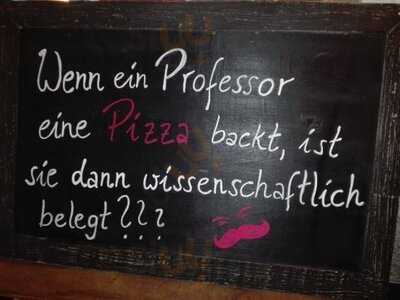 Wenn ein Professor
eine Pizza backt, ist
sie dann wissenschaftlich
belegt???